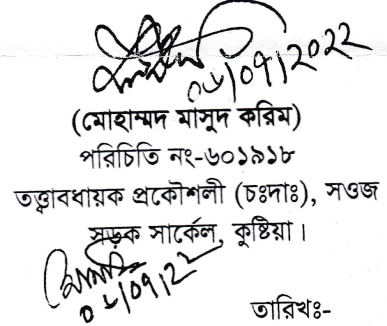 ০৬/০৭/২০২২
(মোহাম্মদ মাসুদ করিম)
পরিচিতি নং-৬০১৯১৮
তত্ত্বাবধায়ক প্রকৌশলী (চঃদাঃ), সওজ
সড়ক সার্কেল, কুষ্টিয়া।
০৬/০৭/২২
তারিখঃ-